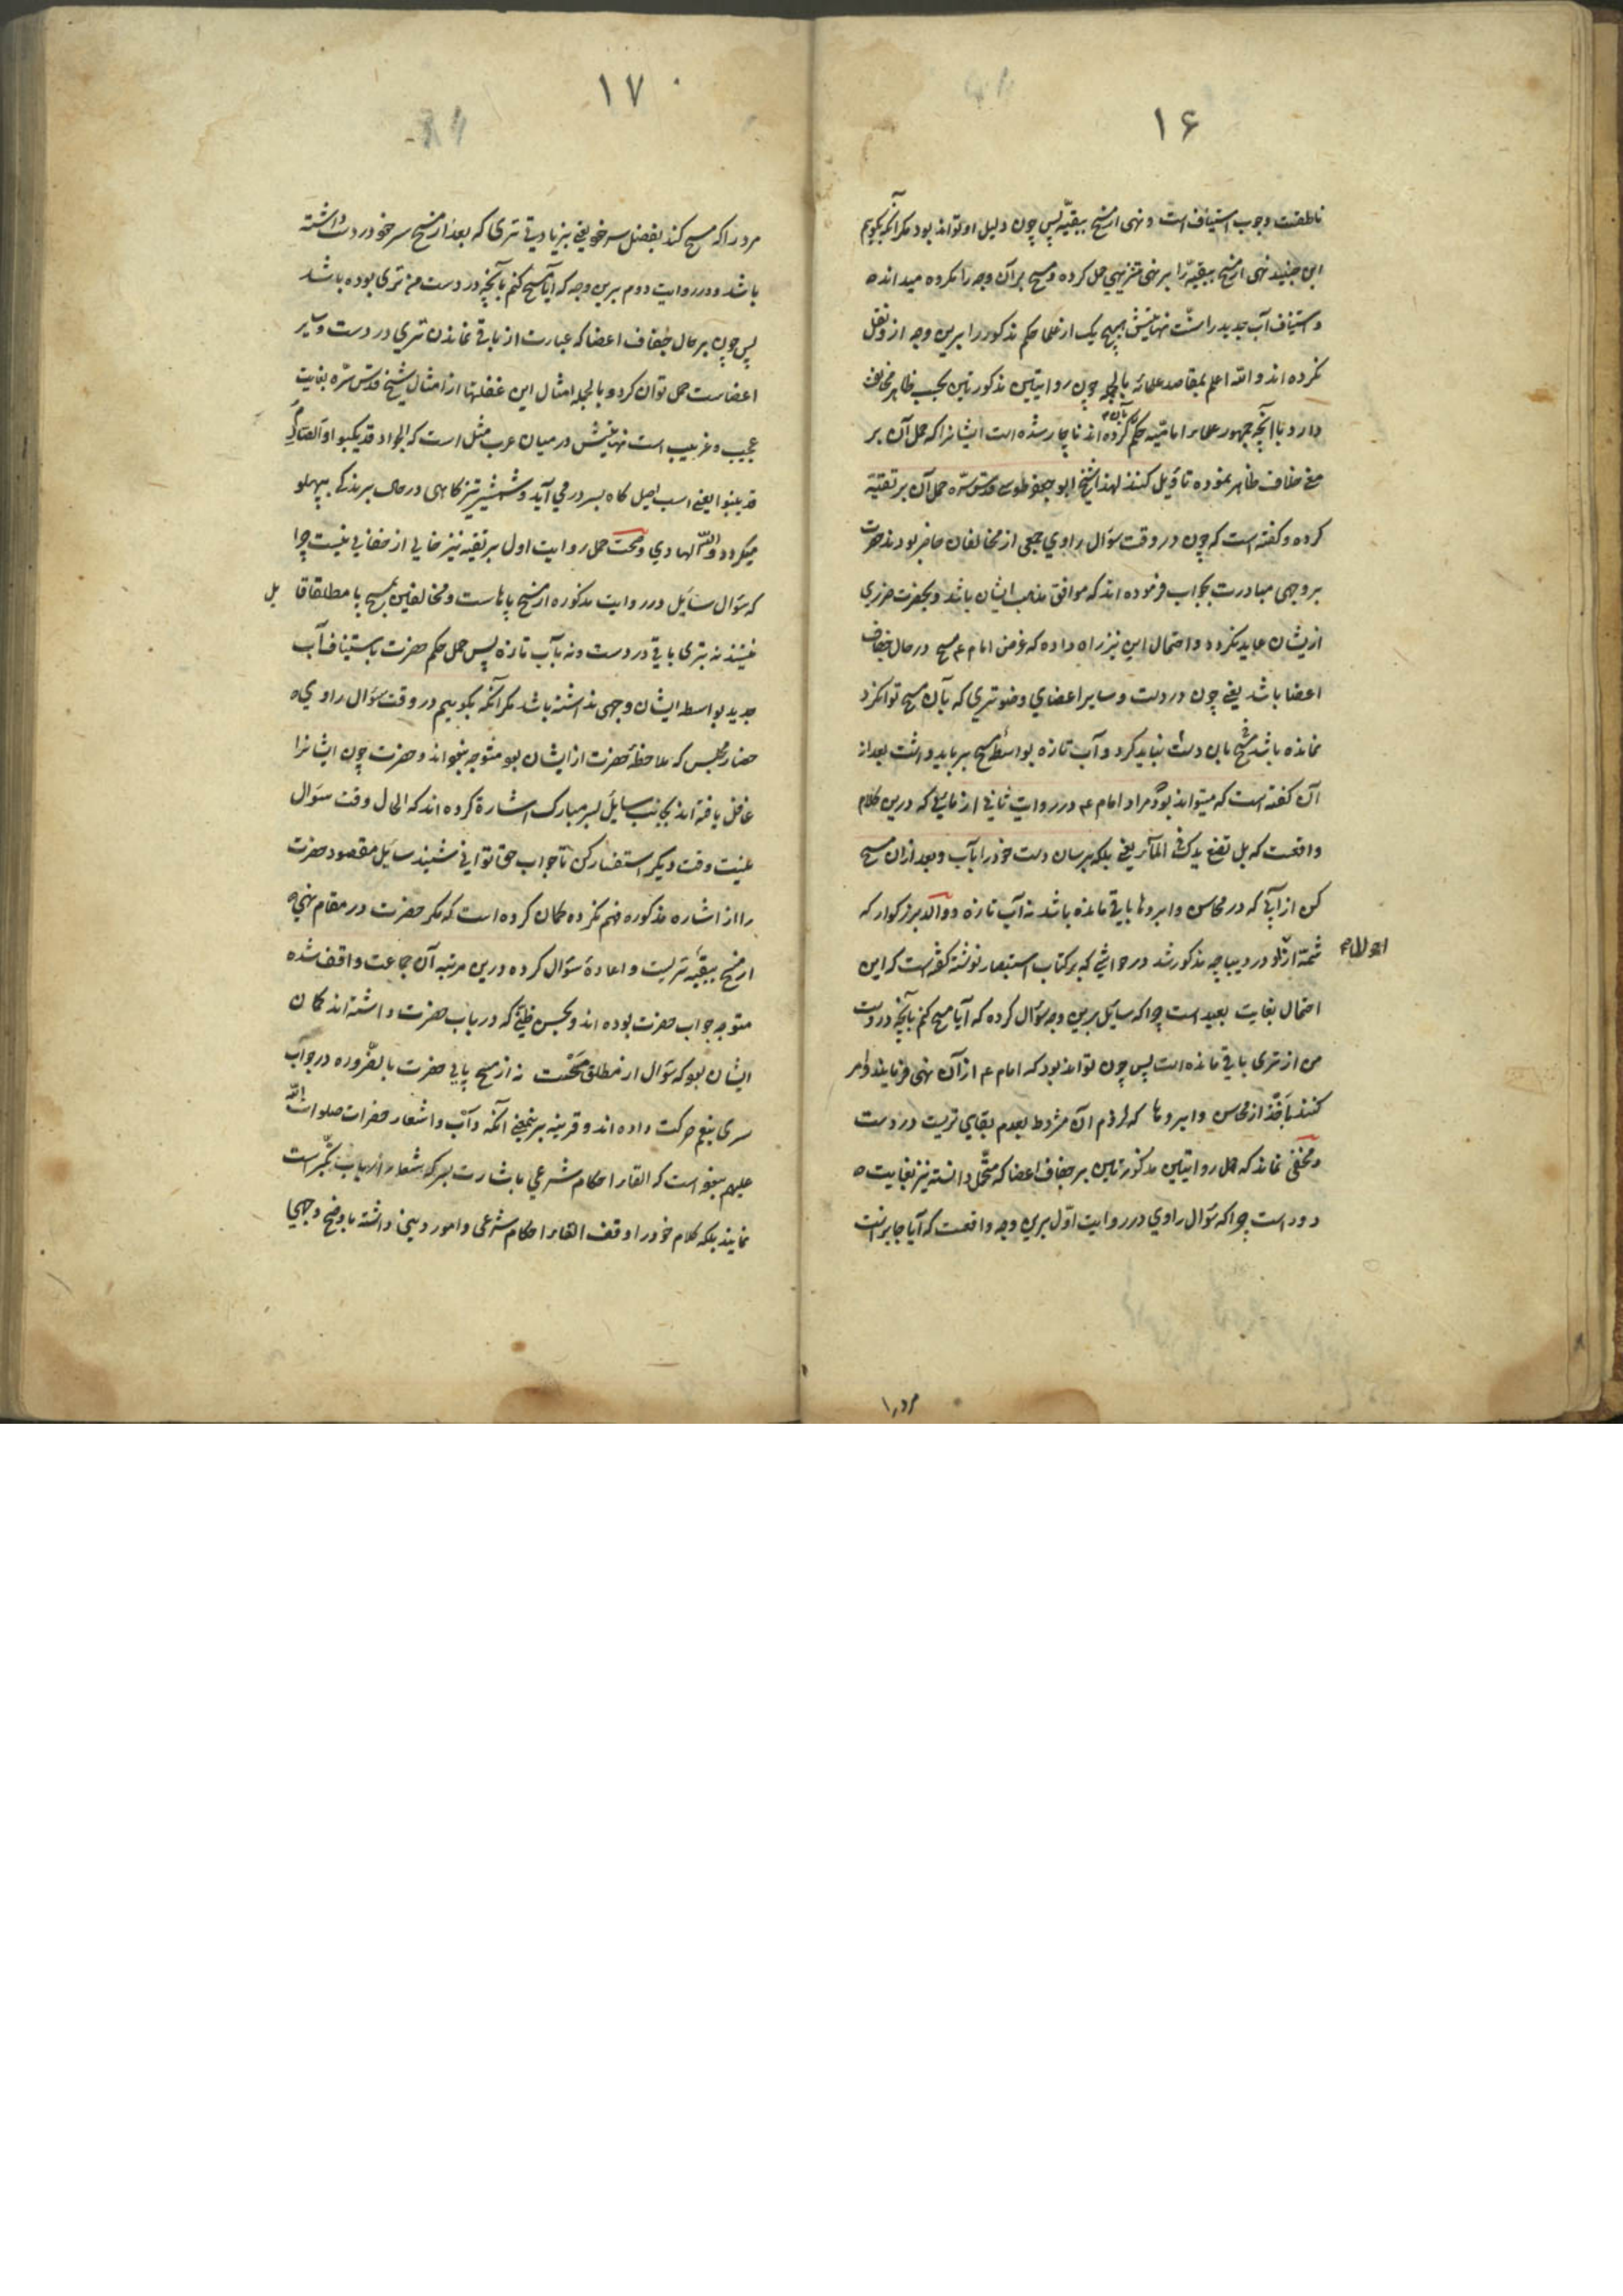 ۱۶
ناطقست وجوب استیناف است و نهی از مسح ببقیّه پس چون دلیل او تواند بود مکر آنکه بکویم
ابن جنید نهی از مسح ببقیّه را بر نهی تنزیهی حمل کرده و مسح بر آن وجه را مکروه میدانده
و استیناف آب جدید را سنّت نهایتش هیچ یک از علما حکم مذکور را برین وجه ازو نقل
نکرده اند و الله اعلم بمقاصد علمائه بالجمله چون روایتین مذکورتین بحسب ظاهر مخالفت
دارد با آنچه جمهور علماء امامیّه بآن حکم کرده اند ناچار شده است ایشانرا که حمل آن بر
معنی خلاف ظاهر نموده تاویل کنند لهذا شیخ ابو جعفر طوسی قدس سرّه حمل آن بر تقیّه
کرده و کفته است که چون در وقت سؤال راوی جمعی از مخالفان حاضر بودند حضرت
بر وجهی مبادرت بجواب فرموده اند که موافق مذهب ایشان باشد و بحضرت ضرری
ازیشان عاید نکردد و احتمال این نیز راه داده که غرض امام ع مسح در حال جفاف
اعضا باشد یعنی چون در دست و سایر اعضای وضو تری که بآن مسح توانکرد
نمانده باشد مسح بان دست نباید کرد و آب تازه بواسطه مسح برباید داشت بعد از
آن کفته است که میتواند بود مراد امام ع در روایت ثانی از مائی که درین کلام
واقعست که بل تضع یدک فی المآء یعنی بلکه برسان دست خود را بآب و بعد از ان مسح
کن از آبی که در محاسن و ابروها باقی مانده باشد نه آب تازه و والد بزرکوار که
شمّهٔ ازو در دیباچه مذکور شد در حواشی که بر کتاب استبصار نوشته کفته است که این
احتمال بغایت بعید است چرا که سایل برین وجه سؤال کرده که آیا مسح کنم بآنچه در دست
من از تری باقی مانده است پس چون تواند بود که امام ع از آن نهی فرمایند و امر
کنند باخذ از محاسن و ابروها که لزوم آن مشروط بعدم بقای تریست در دست
و مخفی نماند که حمل روایتین مذکورتین بر جفاف اعضا که محتمل دانسته نیز بغایت ه
دور است چرا که سؤال راوی در روایت اوّل برین وجه واقعست که آیا جایز است
۱۷
مرد را که مسح کند بفضل سر خود یعنی بزیادتی تری که بعد از مسح سر خود در دست داشته
باشد و در روایت دوم برین وجه که آیا مسح کنم بآنچه در دست من تری بوده باشد
پس چون بر حال جفاف اعضا که عبارت از باقی نماندن تری در دست و سایر
اعضاست حمل توان کرد و بالجمله امثال این غفلتها از امثال شیخ قدس سرّه بغایت
عجیب و غریب است نهایتش در میان عرب مثل است که الجواد قد یکبو و الصارم
قد ینبو یعنی اسب اصیل کاه بسر در می آید و شمشیر تیز کاهی در حالت برندکی بپهلو
میکردد و اللّه الهادی و صحت حمل روایت اول بر تقیه نیز خالی از خفایی نیست چرا
که سؤال سایل در روایت مذکوره از مسح پاهاست و مخالفین بمسح پا مطلقا قایل
نیستند نه بتری باقی در دست و نه بآب تازه پس حمل حکم حضرت باستیناف آب
جدید بواسطه ایشان وجهی نداشته باشد مکر آنکه بکوییم در وقت سؤال راوی ه
حضار مجلس که ملاحظهٔ حضرت از ایشان بود متوجه نبودند و حضرت چون ایشانرا
غافل یافته اند بجانب سایل بسر مبارک اشاره کرده اند که الحال وقت سؤال
نیست وقت دیکر استفسار کن تا جواب حق توانی شنید سایل مقصود حضرت
را از اشاره مذکوره فهم نکرده کمان کرده است که مکر حضرت در مقام نهی ه
از مسح ببقیّه تریست و اعادهٔ سؤال کرده و درین مرتبه آن جماعت واقف شده
متوجه جواب حضرت بوده اند و بحسن ظنّی که در باب حضرت داشته اند کمان
ایشان بود که سؤال از مطلق مسحست نه از مسح پای حضرت بالضروره در جواب
سری بنعم حرکت داده اند و قرینه بر این معنی آنکه دأب و اشعار حضرات صلوات اللّه
علیهم نبوده است که القاء احکام شرعی باشارت بسر که شعار ارباب تکبّر است
نمایند بلکه کلام خود را وقف القاء احکام شرعی و امور دینی داشته باوضح وجهی